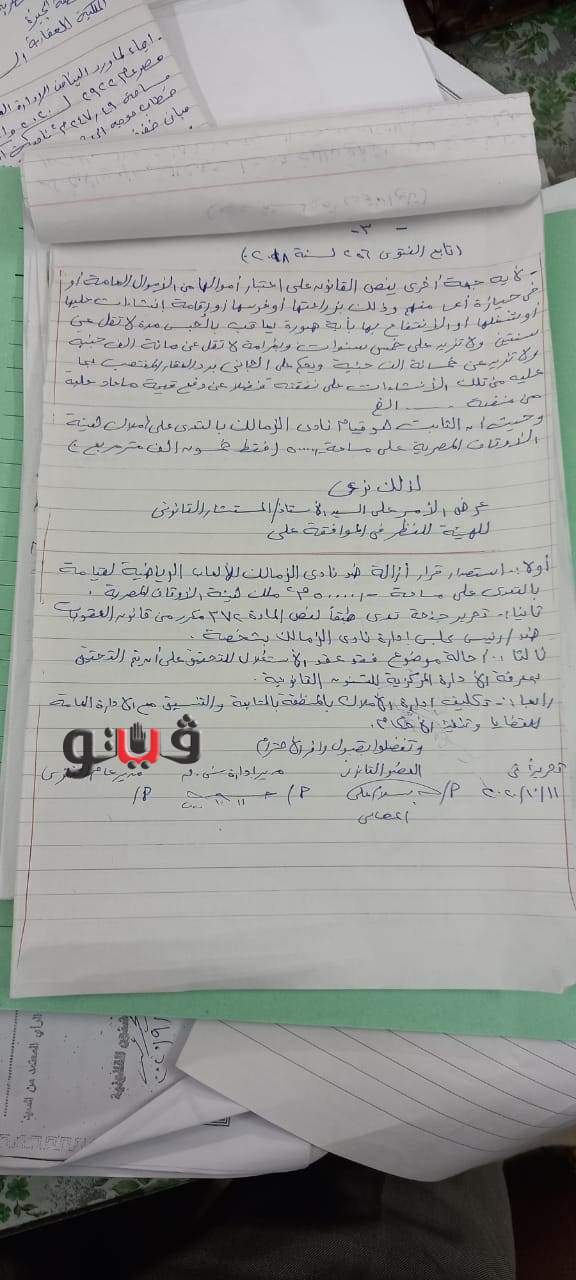 - ٣ -
(تابع الفتوى ٢٠٦ لسنة ٢٠١٨)
- لأية جهة أخرى ينص القانون على اعتبار أموالها من الأموال العامة أو
فى حيازة أى منهم وذلك بزراعتها أو غرسها أو إقامة إنشاءات عليها
أو شغلها أو الانتفاع بها بأية صورة يعاقب بالحبس مدة لا تقل عن
سنتين ولا تزيد على خمس سنوات وبغرامة لا تقل عن مائة ألف جنيه
ولا تزيد عن خمسائة ألف جنية ويحكم على الجانى برد العقار المغتصب بما
عليه من تلك الإنشاءات على نفقته فضلا عن دفع قيمة ماعاد عليه
من منفعة ....... الخ
وحيث أن الثابت هو قيام نادى الزمالك بالتعدى على أملاك هيئة
الأوقاف المصرية على مساحة (فقط خمسون الف متر مربع)
لذلك نرى
عرض الأمر على السيد الأستاذ/ المستشار القانونى
للهيئة للنظر فى الموافقة على
أولا:- استصدار قرار أزالة ضد نادى الزمالك للألعاب الرياضية لقيامة
بالتعدى على مساحة ملك هيئة الأوقاف المصرية.
ثانيا:- تحرير جنحة تعدى طبقا لنص المادة ٣٧٢ مكرر من قانون العقوبات
ضد/ رئيس مجلس ادارة نادى الزمالك بشخصة.
ثالثا:- إحالة موضوع فقد عقد الاستغلال للتحقيق على أن يتم التحقيق
بمعرفة الأدارة المركزية للشئون القانونية.
رابعا:- تكليف إدارة الأملاك بالمنطقة بالمتابعة والتنسيق مع الادارة العامة
للقضايا وتنفيذ الأحكام.
وتفضلوا بقبول وافر الاحترام
تحريرا فى العضو القانونى مدير ادارة مدير عام
٢٠٢٠/١٠/١١
ڤيتو